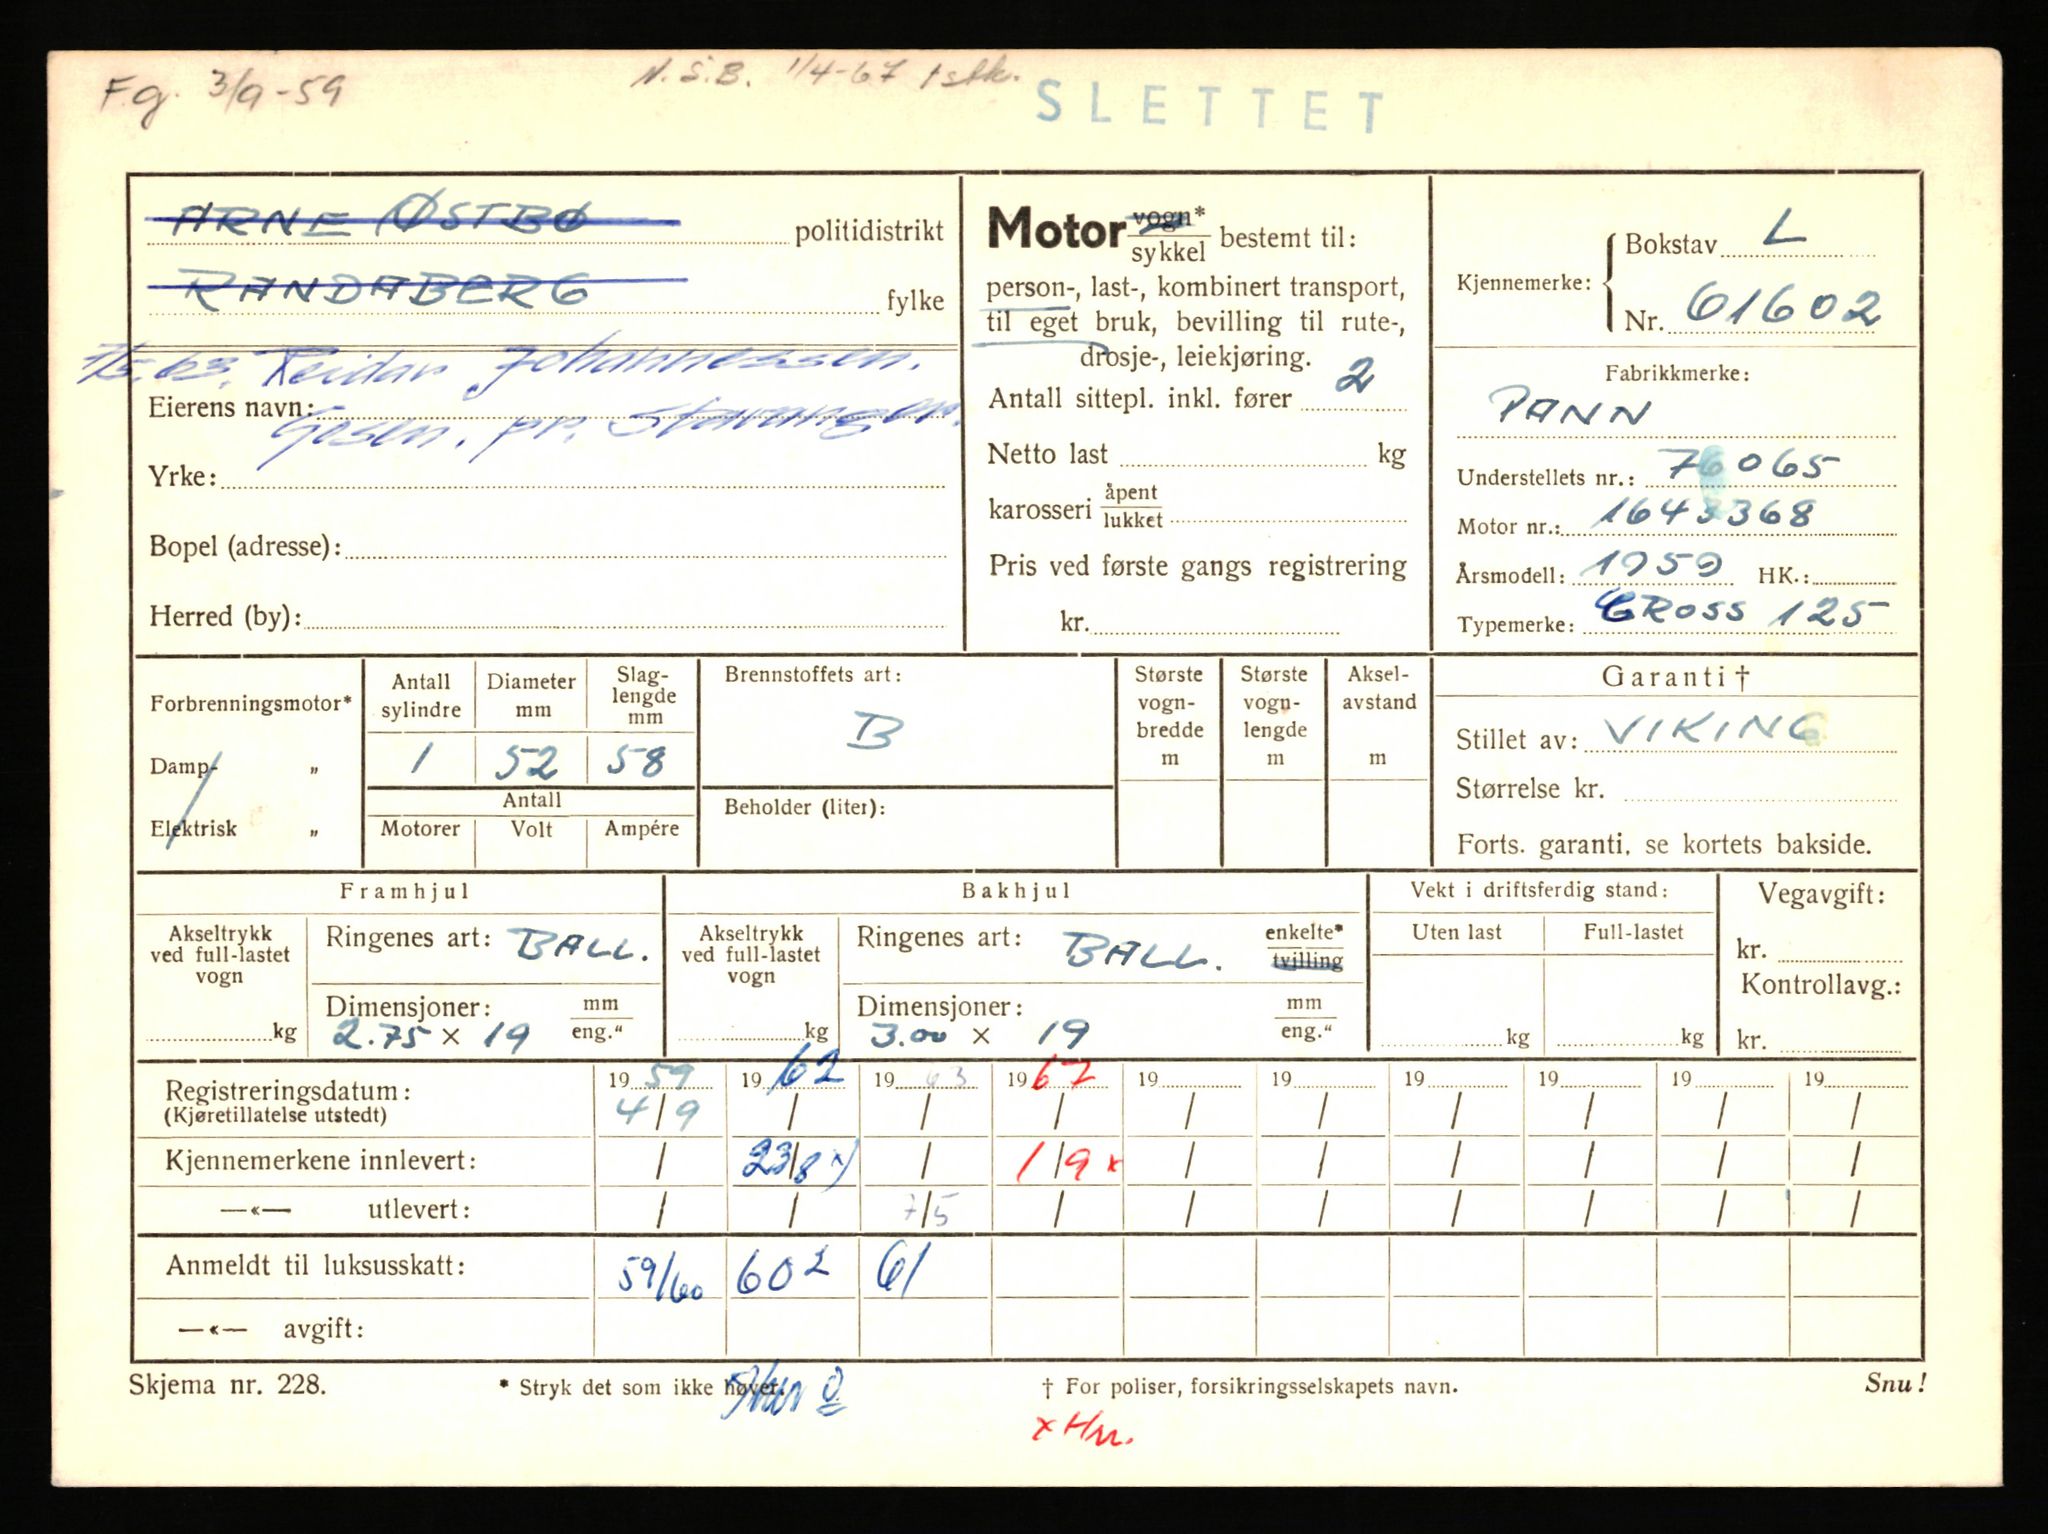 F.g. 3/9-59
N.S.B. 1/4-67 1 stk.
SLETTET
ARNE ØSTBØ politidistrikt
RANDABERG fylke
7/5.63. Reidar Johannessen.
Eierens navn:
Gosen. pr. Stavanger.
Yrke:
Bopel (adresse):
Herred (by):
Motor vogn* / sykkel bestemt til:
person-, last-, kombinert transport,
til eget bruk, bevilling til rute-,
drosje-, leiekjøring.
Antall sittepl. inkl. fører 2
Netto last kg
karosseri åpent / lukket
Pris ved første gangs registrering
kr.
Kjennemerke: Bokstav L
Nr. 61602
Fabrikkmerke:
PANN
Understellets nr.: 76065
Motor nr.: 1643368
Årsmodell: 1959 HK.:
Typemerke: CROSS 125
Forbrenningsmotor*
Damp- „
Elektrisk „
Antall sylindre 1
Diameter mm 52
Slag-lengde mm 58
Antall
Motorer Volt Ampére
Brennstoffets art:
B
Beholder (liter):
Største vogn-bredde m
Største vogn-lengde m
Aksel-avstand m
Garanti †
Stillet av: VIKING
Størrelse kr.
Forts. garanti, se kortets bakside.
Framhjul
Akseltrykk ved full-lastet vogn kg
Ringenes art: BALL.
Dimensjoner: mm / eng.“
2.75 x 19
Bakhjul
Akseltrykk ved full-lastet vogn kg
Ringenes art: BALL. enkelte* / tvilling
Dimensjoner: mm / eng.“
3.00 x 19
Vekt i driftsferdig stand:
Uten last Full-lastet
kg kg
Vegavgift:
kr.
Kontrollavg.:
kr.
Registreringsdatum: 1959 1962 1963 1967 19 19 19 19 19 19
(Kjøretillatelse utstedt) 4/9 / / / / / / / / /
Kjennemerkene innlevert: / 23/8 x) / 1/9 x / / / / / /
—«— utlevert: / / 7/5 / / / / / / /
Anmeldt til luksusskatt: 59/60 60 2 61
—«— avgift:
Skjema nr. 228. * Stryk det som ikke høver. † For poliser, forsikringsselskapets navn. Snu!
x Hm.